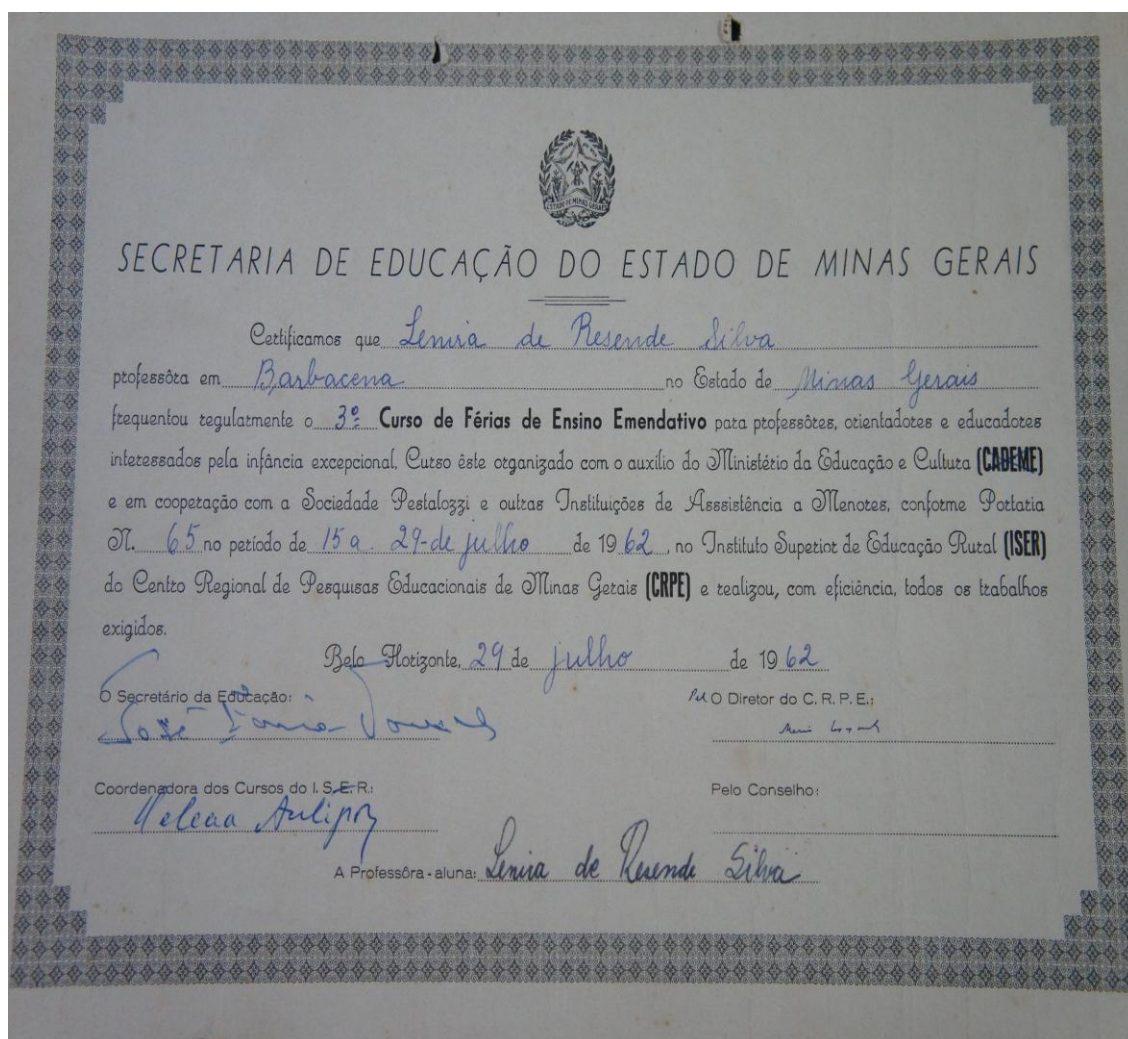 ESTADO DE MINAS GERAIS
SECRETARIA DE EDUCAÇÃO DO ESTADO DE MINAS GERAIS
Certificamos que Lenira de Resende Silva
professôra em Barbacena no Estado de Minas Gerais
frequentou regularmente o 3º Curso de Férias de Ensino Emendativo para professôres, orientadores e educadores
interessados pela infância excepcional, Curso êste organizado com o auxilio do Ministério da Educação e Cultura (CADEME)
e em cooperação com a Sociedade Pestalozzi e outras Instituições de Asssistência a Menores, conforme Portaria
N. 65 no período de 15 a 29 de julho de 1962, no Instituto Superior de Educação Rural (ISER)
do Centro Regional de Pesquisas Educacionais de Minas Gerais (CRPE) e realizou, com eficiência, todos os trabalhos
exigidos.
Belo Horizonte, 29 de julho de 1962
O Secretário da Educação: O Diretor do C. R. P. E.:
José
Coordenadora dos Cursos do I. S. E. R.: Pelo Conselho:
Helena Antipoff
A Professôra-aluna: Lenira de Resende Silva